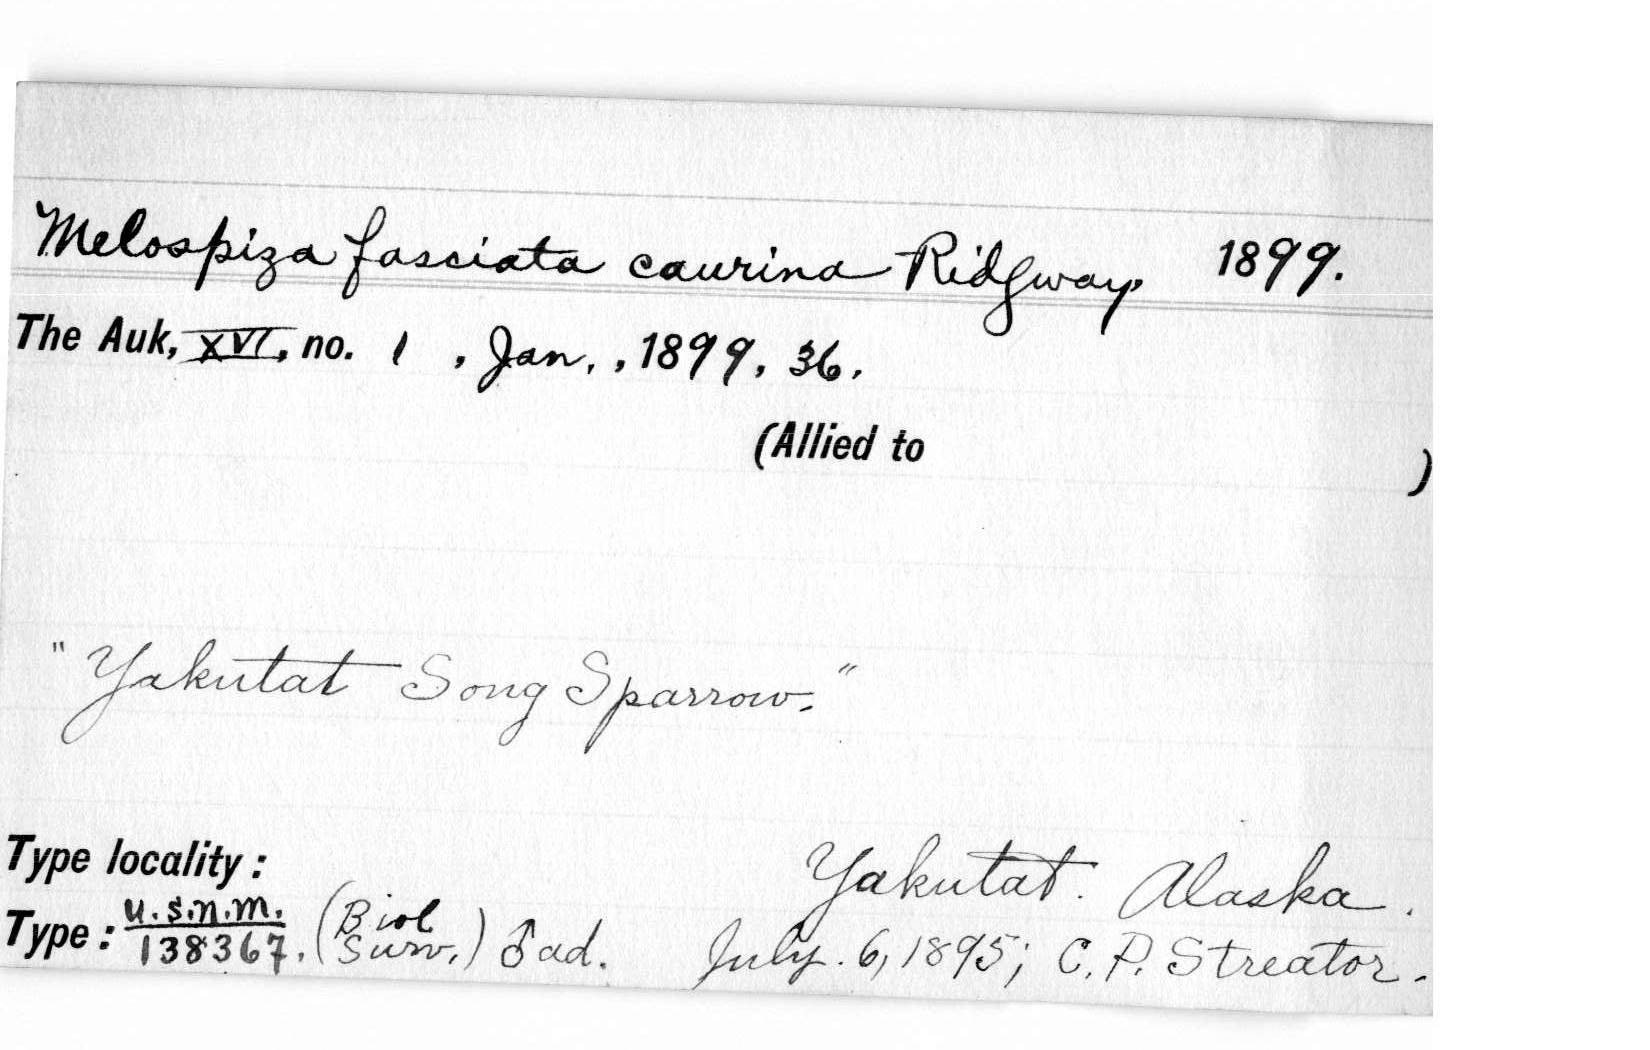 Melospiza fasciata caurina Ridgway, 1899.
The Auk, XVI, no. 1, Jan., 1899, 36.
(Allied to )
"Yakutat Song Sparrow."
Type locality: Yakutat. Alaska.
Type: U.S.N.M. 138367. (Biol Surv.) ♂ ad. July. 6, 1895; C. P. Streator.